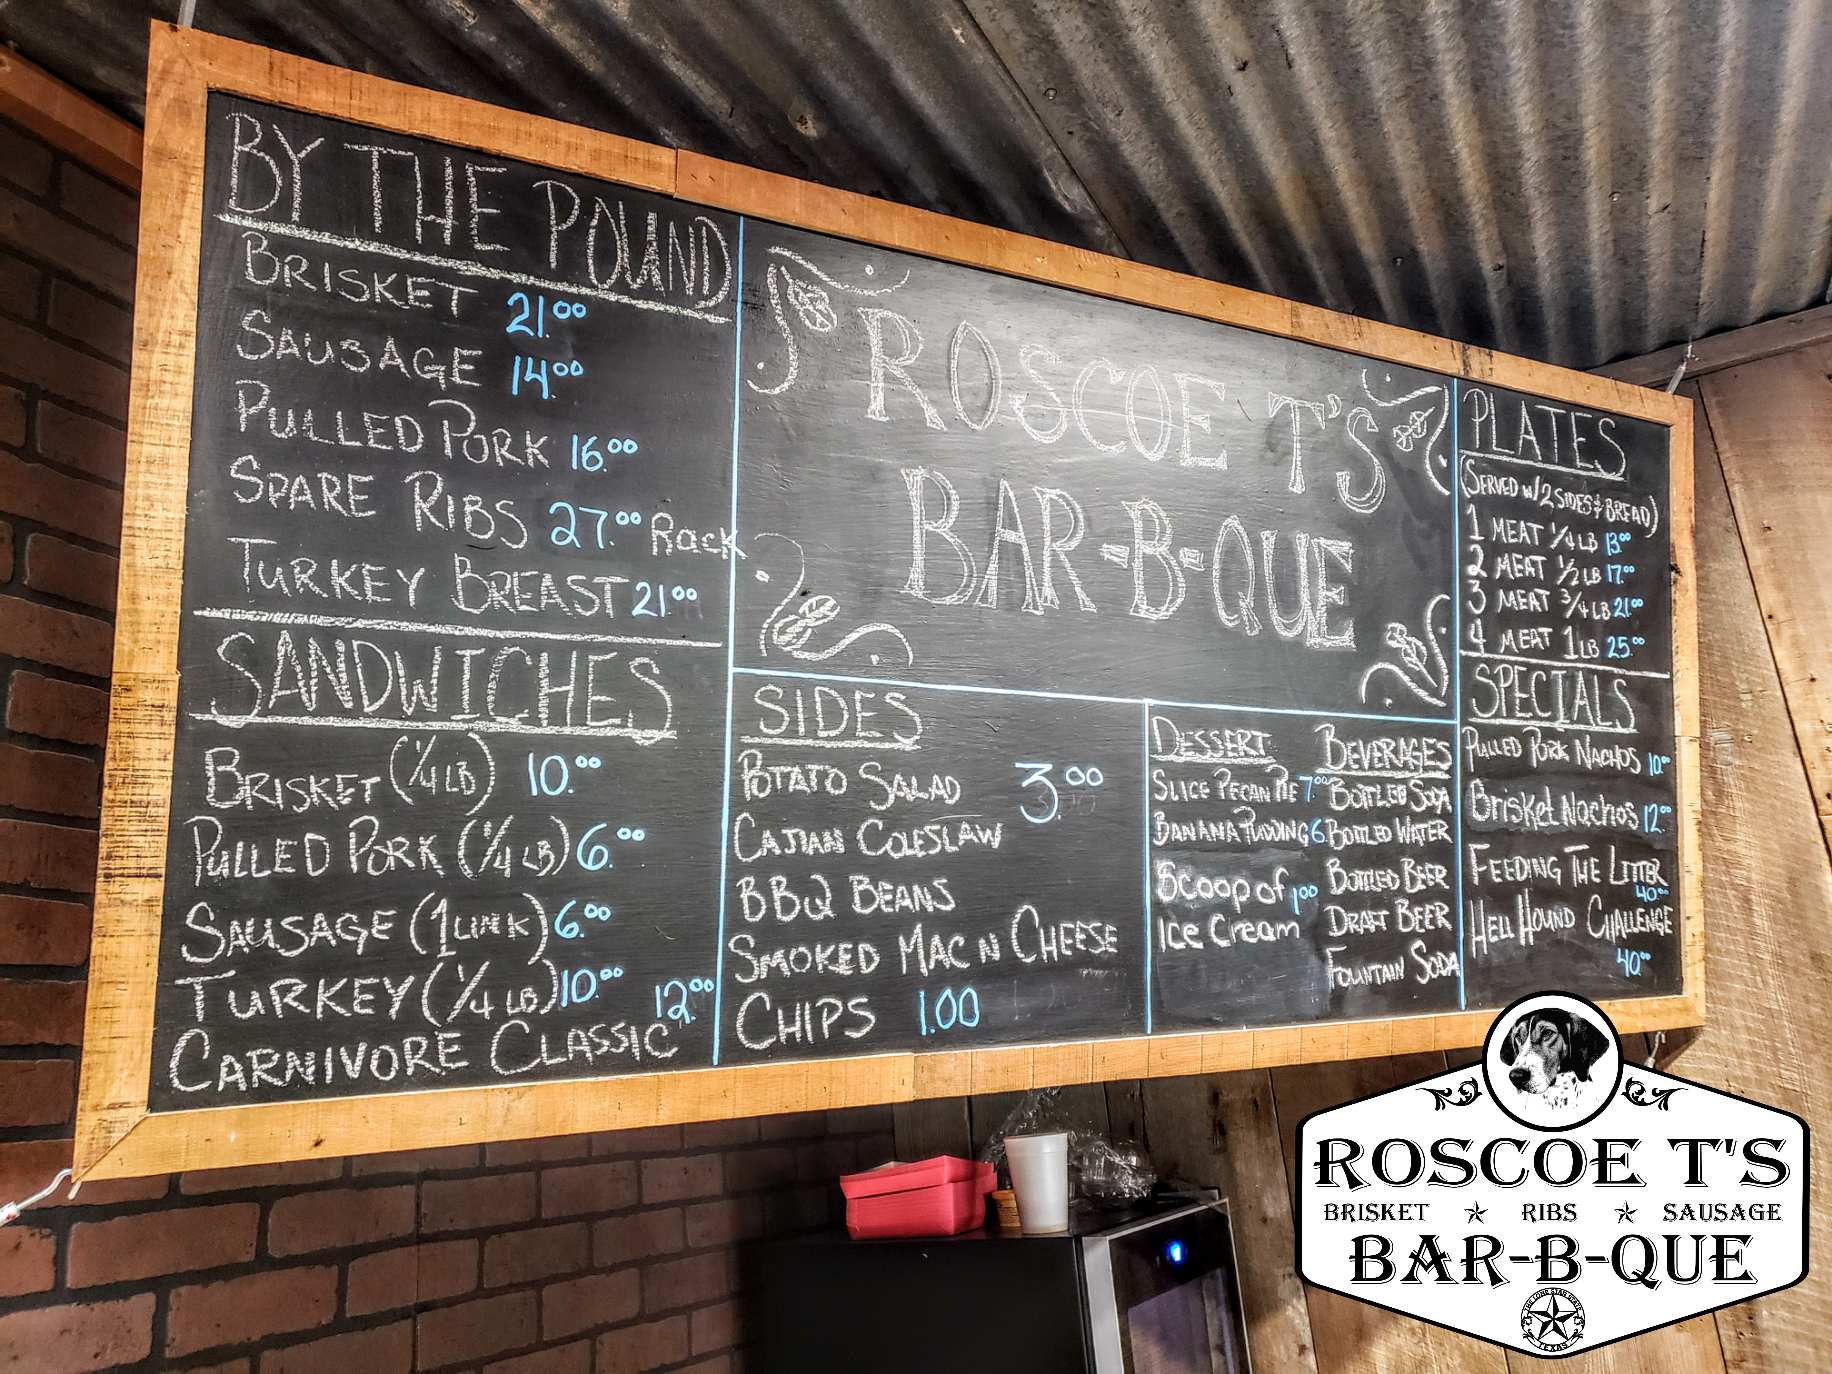 BY THE POUND
BRISKET 21.00
SAUSAGE 14.00
PULLED PORK 16.00
SPARE RIBS 27.00 Rack
TURKEY BREAST 21.00
SANDWICHES
BRISKET (1/4 LB) 10.00
PULLED PORK (1/4 LB) 6.00
SAUSAGE (1 LINK) 6.00
TURKEY (1/4 LB) 10.00
CARNIVORE CLASSIC 12.00
ROSCOE T'S
BAR-B-QUE
SIDES
POTATO SALAD 3.00
CAJUN COLESLAW
BBQ BEANS
SMOKED MAC N CHEESE
CHIPS 1.00
DESSERT
SLICE PECAN PIE 7.00
BANANA PUDDING 6.
Scoop of 1.00
Ice Cream
BEVERAGES
BOTTLED SODA
BOTTLED WATER
BOTTLED BEER
DRAFT BEER
FOUNTAIN SODA
PLATES
(SERVED W/ 2 SIDES & BREAD)
1 MEAT 1/4 LB 13.00
2 MEAT 1/2 LB 17.00
3 MEAT 3/4 LB 21.00
4 MEAT 1 LB 25.00
SPECIALS
PULLED PORK NACHOS 10.00
Brisket Nachos 12.00
FEEDING THE LITTER
40.00
HELL HOUND CHALLENGE
40.00
ROSCOE T'S
BRISKET RIBS SAUSAGE
BAR-B-QUE
THE LONE STAR STATE
TEXAS